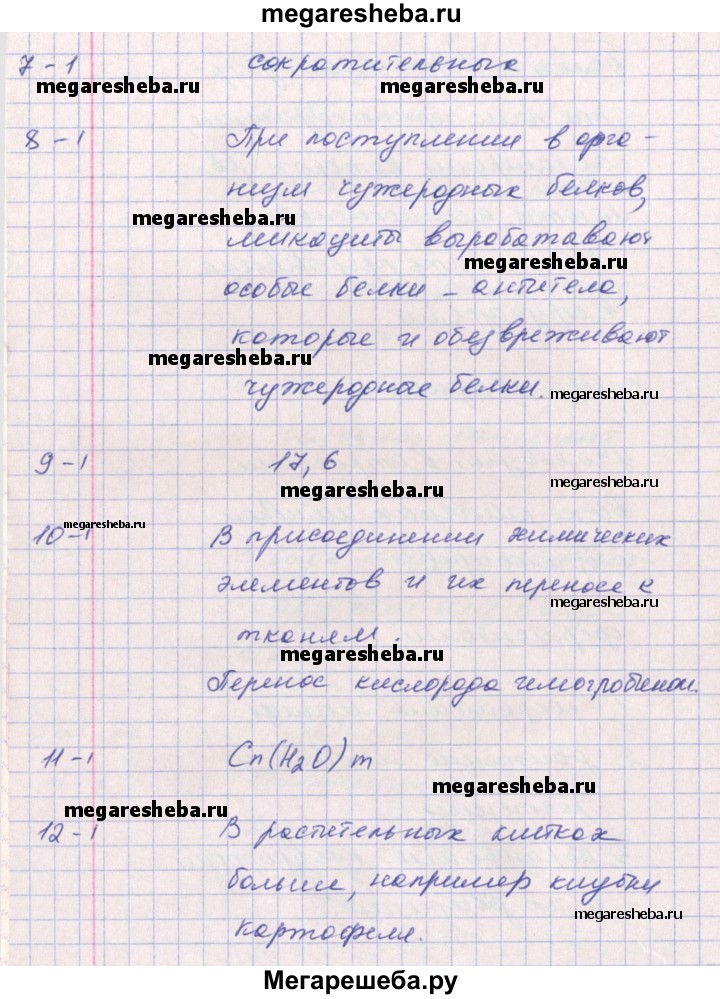 megaresheba.ru
7 - 1 сократительных
megaresheba.ru megaresheba.ru
8 - 1 При поступлении в орга-
низм чужеродных белков,
megaresheba.ru
микациты выработавают
megaresheba.ru
особые белки - антитела,
которые и обезвреживают
megaresheba.ru
чужеродные белки. megaresheba.ru
9 - 1 17,6
megaresheba.ru
megaresheba.ru
10 - 1 В присоединении химических
элементов и их переносе к
megaresheba.ru
тканям.
megaresheba.ru
Перенос кислорода гемогробином.
11 - 1 Cn(H2O)m
megaresheba.ru
megaresheba.ru
12 - 1 В растительных клетках
больше, например клубни
megaresheba.ru
картофеля.
Мегарешеба.ру